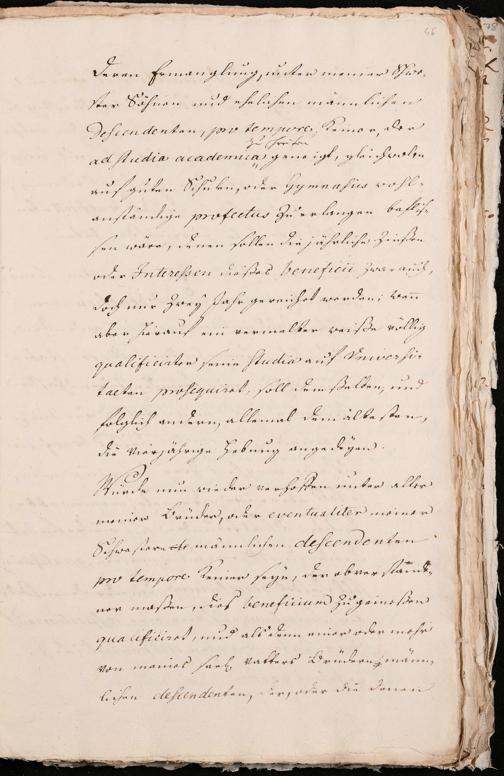 46
deren Ermanglung, unter meiner Schwe-
ster Söhnen und ehelichen männlichen
Descendenten, pro tempore, keiner, der
zu treten
ad studia academica geneigt, gleichwolen
auf guten Schulen, oder Gymnasiis wohl-
anständige profectus zu erlangen befliß-
sen wäre, denen sollen die jährliche Zinßen
oder Interessen dießes beneficii zwar auch,
doch nur zwey Jahr gereichet werden; wann
aber hierauf ein vermelter weiße völlig
qualificirter seine studia auf Universi-
taeten prosequiret, soll demselben, und
folglich andern, allemal dem ältesten,
die vierjährige Hebung angedeyen.
Würde nun wieder verhoffen unter aller
meiner Brüder, oder eventualiter meiner
Schwestern männlichen descendenten
pro tempore keiner seyn, der obverstande-
ner maßen, dies beneficium zu genießen
qualificiret, und alsdenn einer oder mehr
von meines seel. Vatters Brüdern männ-
lichen descendenten, der, oder die denen